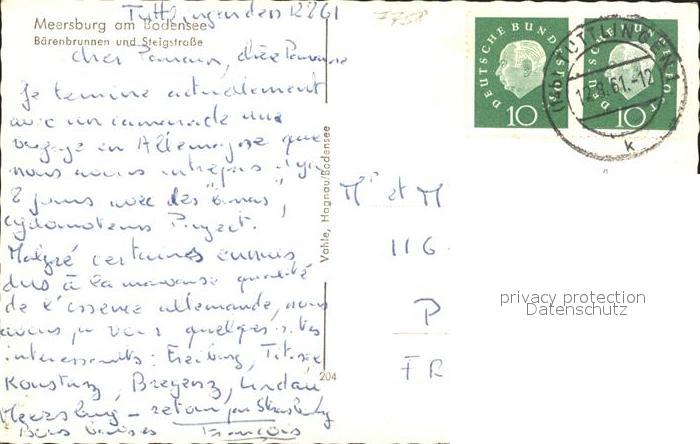 Meersburg am Bodensee
Bärenbrunnen und Steigstraße
Tuttlingen den 12 8 61
7758
cher Parrain, chère Marraine
Je termine actuellement
avec un camarade une
voyage en Allemagne que
nous avons entrepris il y a
8 jours avec des "
cyclomoteurs Peugeot.
Malgré certaines ennuis
dus à la mauvaise qualité
de l'essence allemande, nous
avons pu voir quelques sites
intéressants: Freiburg, Titisee
Konstanz, Bregenz, Lindau
Meersburg - retour par Strasbourg
Bons baisers François
Vahle, Hagnau/Bodensee
204
DEUTSCHE BUNDESPOST
10
DEUTSCHE BUNDESPOST
10
TUTTLINGEN
61.-12
k
Mr et M
116
P
FR
privacy protection
Datenschutz